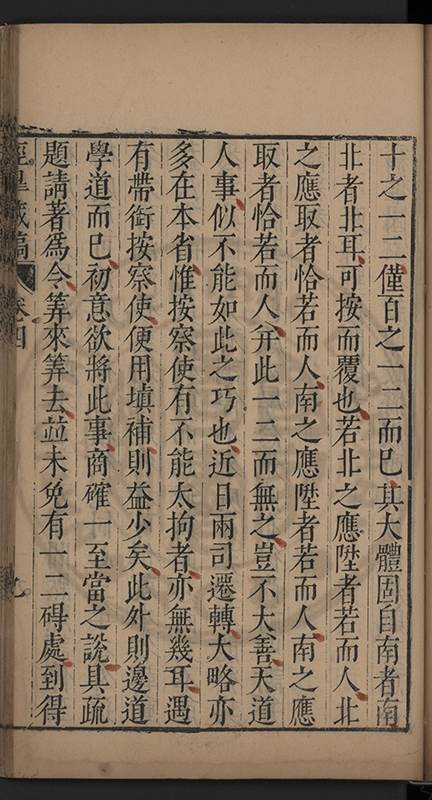 十之一二僅百之一二而已其大體固自南者南
北者北耳可按而覆也若北之應陞者若而人北
之應取者恰若而人南之應陞者若而人南之應
取者恰若而人并此一二而無之豈不大善天道
人事似不能如此之巧也近日兩司遷轉大略亦
多在本省惟按察使有不能太拘者亦無幾耳遇
有帶銜按察使便用填補則益少矣此外則邊道
學道而已初意欲將此事商確一至當之說具疏
題請著為令筭來筭去並未免有一二碍處到得
藏稿
卷四
九